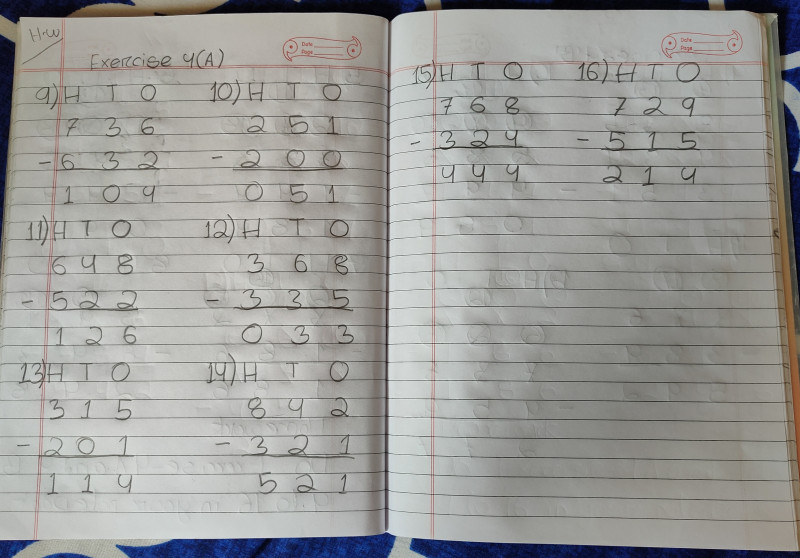 H.W
Date
Page
Exercise 4(A)
9) H T O 10) H T O
7 3 6 2 5 1
- 6 3 2 - 2 0 0
1 0 4 0 5 1
11) H T O 12) H T O
6 4 8 3 6 8
- 5 2 2 - 3 3 5
1 2 6 0 3 3
13) H T O 14) H T O
3 1 5 8 4 2
- 2 0 1 - 3 2 1
1 1 4 5 2 1
Date
Page
15) H T O 16) H T O
7 6 8 7 2 9
- 3 2 4 - 5 1 5
4 4 4 2 1 4